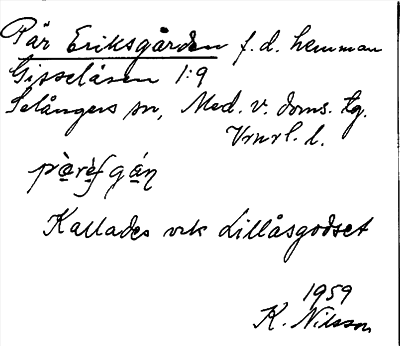 Pär Eriksgården f.d. hemman
Gisselåsen 1:9
Selångers sn, Med. v. doms. tg.
Vrnrl. l.
Kallades vrk Lillåsgodset
1959
K. Nilsson